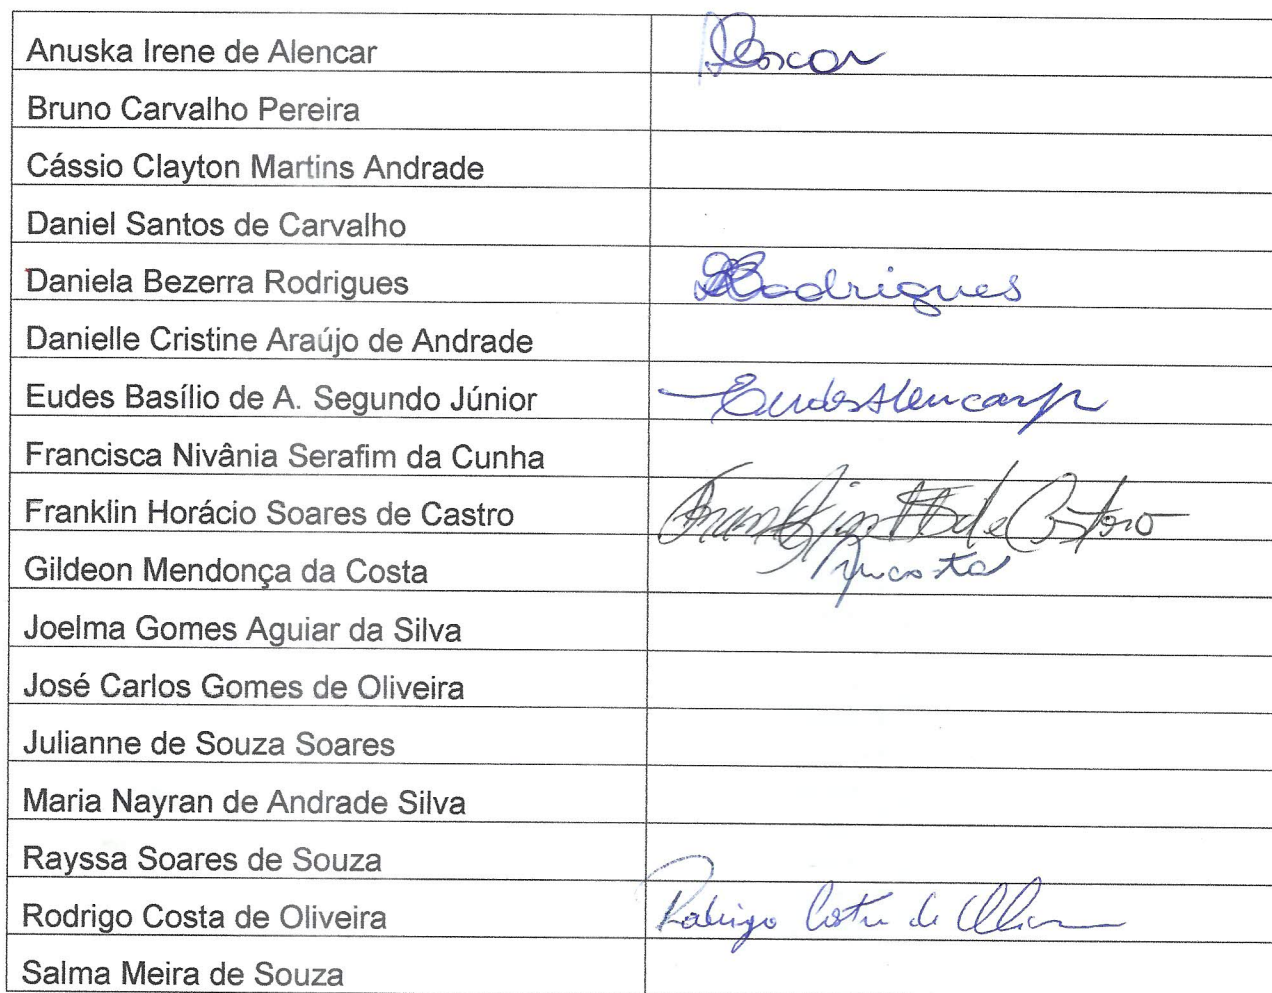 Anuska Irene de Alencar
Bruno Carvalho Pereira
Cássio Clayton Martins Andrade
Daniel Santos de Carvalho
Daniela Bezerra Rodrigues Rodrigues
Danielle Cristine Araújo de Andrade
Eudes Basílio de A. Segundo Júnior EudesAlencarjr
Francisca Nivânia Serafim da Cunha
Franklin Horácio Soares de Castro Franklin H S de Castro
Gildeon Mendonça da Costa
Joelma Gomes Aguiar da Silva
José Carlos Gomes de Oliveira
Julianne de Souza Soares
Maria Nayran de Andrade Silva
Rayssa Soares de Souza
Rodrigo Costa de Oliveira Rodrigo Costa de Oliveira
Salma Meira de Souza